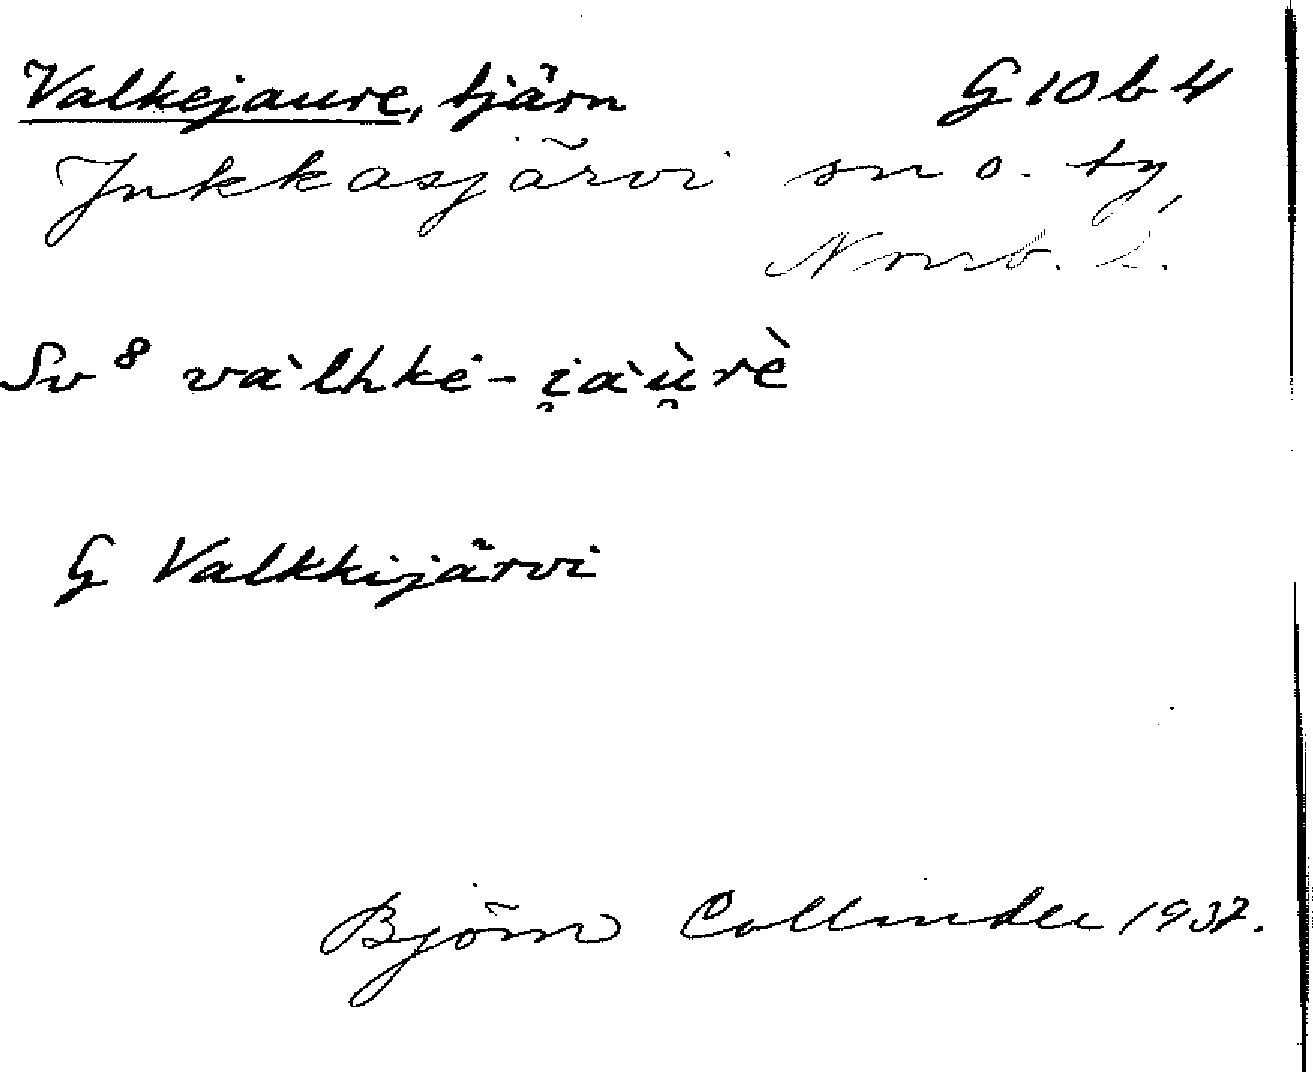 Valkejaure, tjärn G 10 b 4
Jukkasjärvi sn o. tg
Norrb. l.
Sv 8 và'lhké-i̯àu̯̇̀rè
G Valkkijärvi
Björn Collinder 1937.